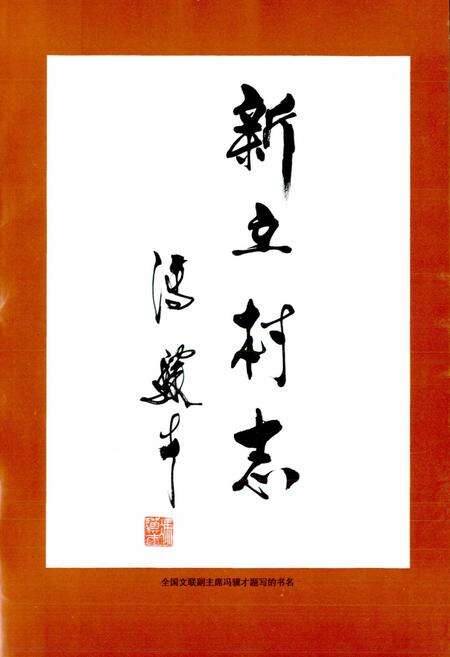 新立村志
冯骥才
全国文联副主席冯骥才题写的书名